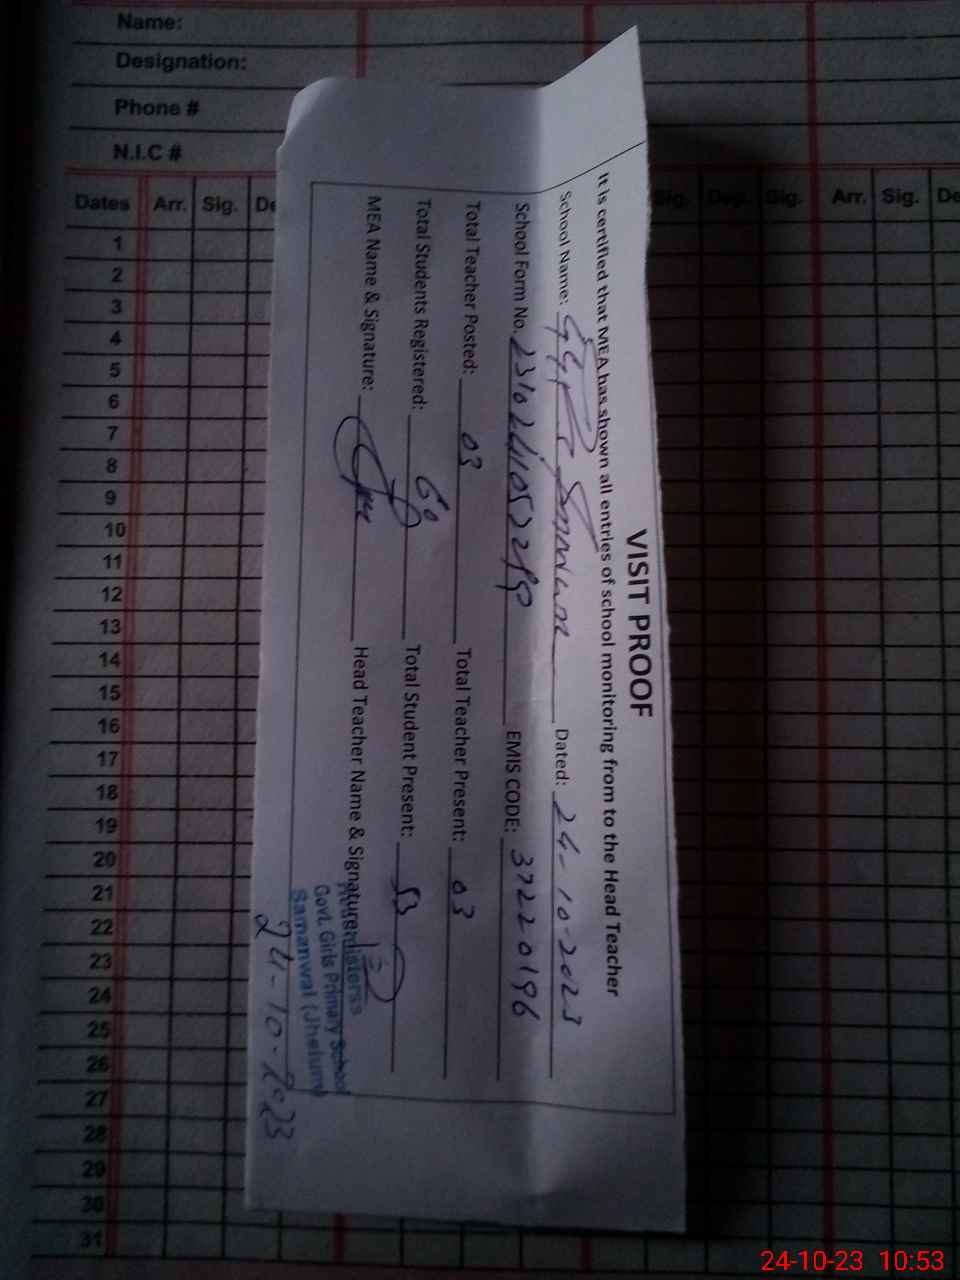 Name:
Designation:
Phone #
N.I.C #
Dates Arr. Sig. De Sig. Dep. Sig. Arr. Sig. De
1
2
3
4
5
6
7
8
9
10
11
12
13
14
15
16
17
18
19
20
21
22
23
24
25
26
27
28
29
30
31
VISIT PROOF
It is certified that MEA has shown all entries of school monitoring from to the Head Teacher
School Name: Dated: 24-10-2023
School Form No. EMIS CODE: 37220196
Total Teacher Posted: 03 Total Teacher Present: 03
Total Students Registered: 60 Total Student Present: 53
MEA Name & Signature: Head Teacher Name & Signature:
Govt. Girls Primary School
Samanwal (Jhelum)
24-10-2023
24-10-23 10:53